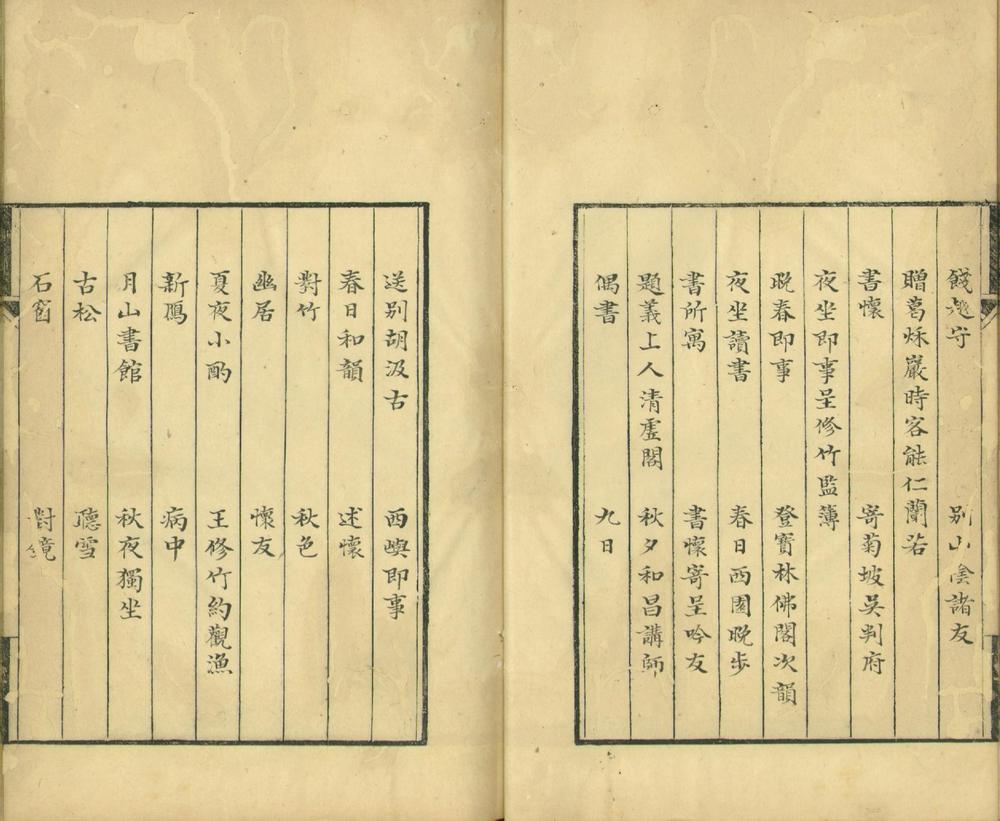 餞越守　別山陰諸友
贈葛秋巖時客能仁蘭若
書懷　寄菊坡吳判府
夜坐即事呈修竹監簿
晚春即事　登寶林佛閣次韻
夜坐讀書　春日西園晚步
書所寓　書懷寄呈吟友
題義上人清虛閣　秋夕和昌講師
偶書　九日
送别胡汲古　西嶼即事
春日和韻　述懷
對竹　秋色
幽居　懷友
夏夜小酌　王修竹約觀漁
新鴈　病中
月山書館　秋夜獨坐
古松　聽雪
石窗　對鏡